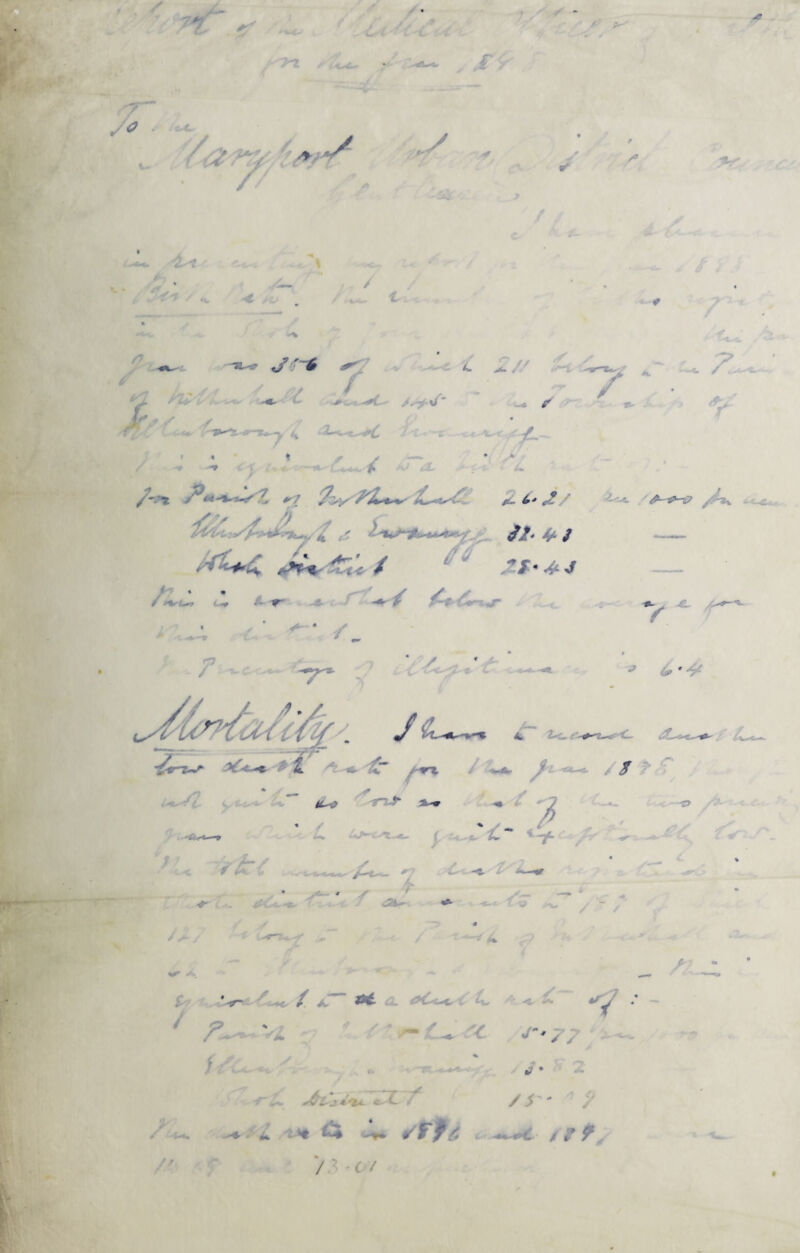 Report of the Medical Officer of
for the year 1898
To the
Maryport Urban District Council
Gentlemen
I have pleasure
in presenting my report for the year 1898
Birth Rate. The number of births regist.
in the whole of your
year was 356 of which 211 belong to the Parish
of Netherhall and 145 to the Township of
Ellenborough and Ewanrigg
This is equivalent to a birth rate of :-
For Parish of Netherhall 26.21 per 1000 per ann
Ellenborough & Ewanrigg 32.43 —
Whole District 28.43 —
This is somewhat below the average for
this district.
The Percentage of illegitimacy is 6.4
Mortality. I have to record another
low death rate for the year 1898, though
not quite as low as that of the two preceding
years which were quite exceptionally low.
The total number of deaths registered in
whole district amounts to 189 of which
127 belong to the Parish of Netherhall and
62 to Ellenborough & - This is
equivalent to a death rate of :-
Parish of Netherhall 15.77 per 1000
Ellenborough & Ewanrigg 13.82
Whole District 15.09
The death rate in 1896 and 1897 were
and 13.01 respectively